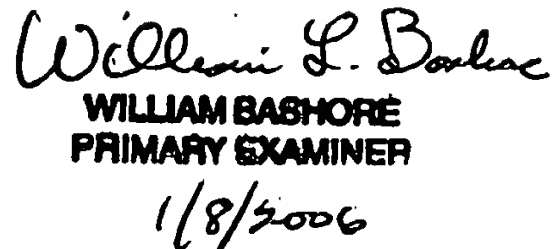 William L. Bashore
WILLIAM BASHORE
PRIMARY EXAMINER
1/8/2006